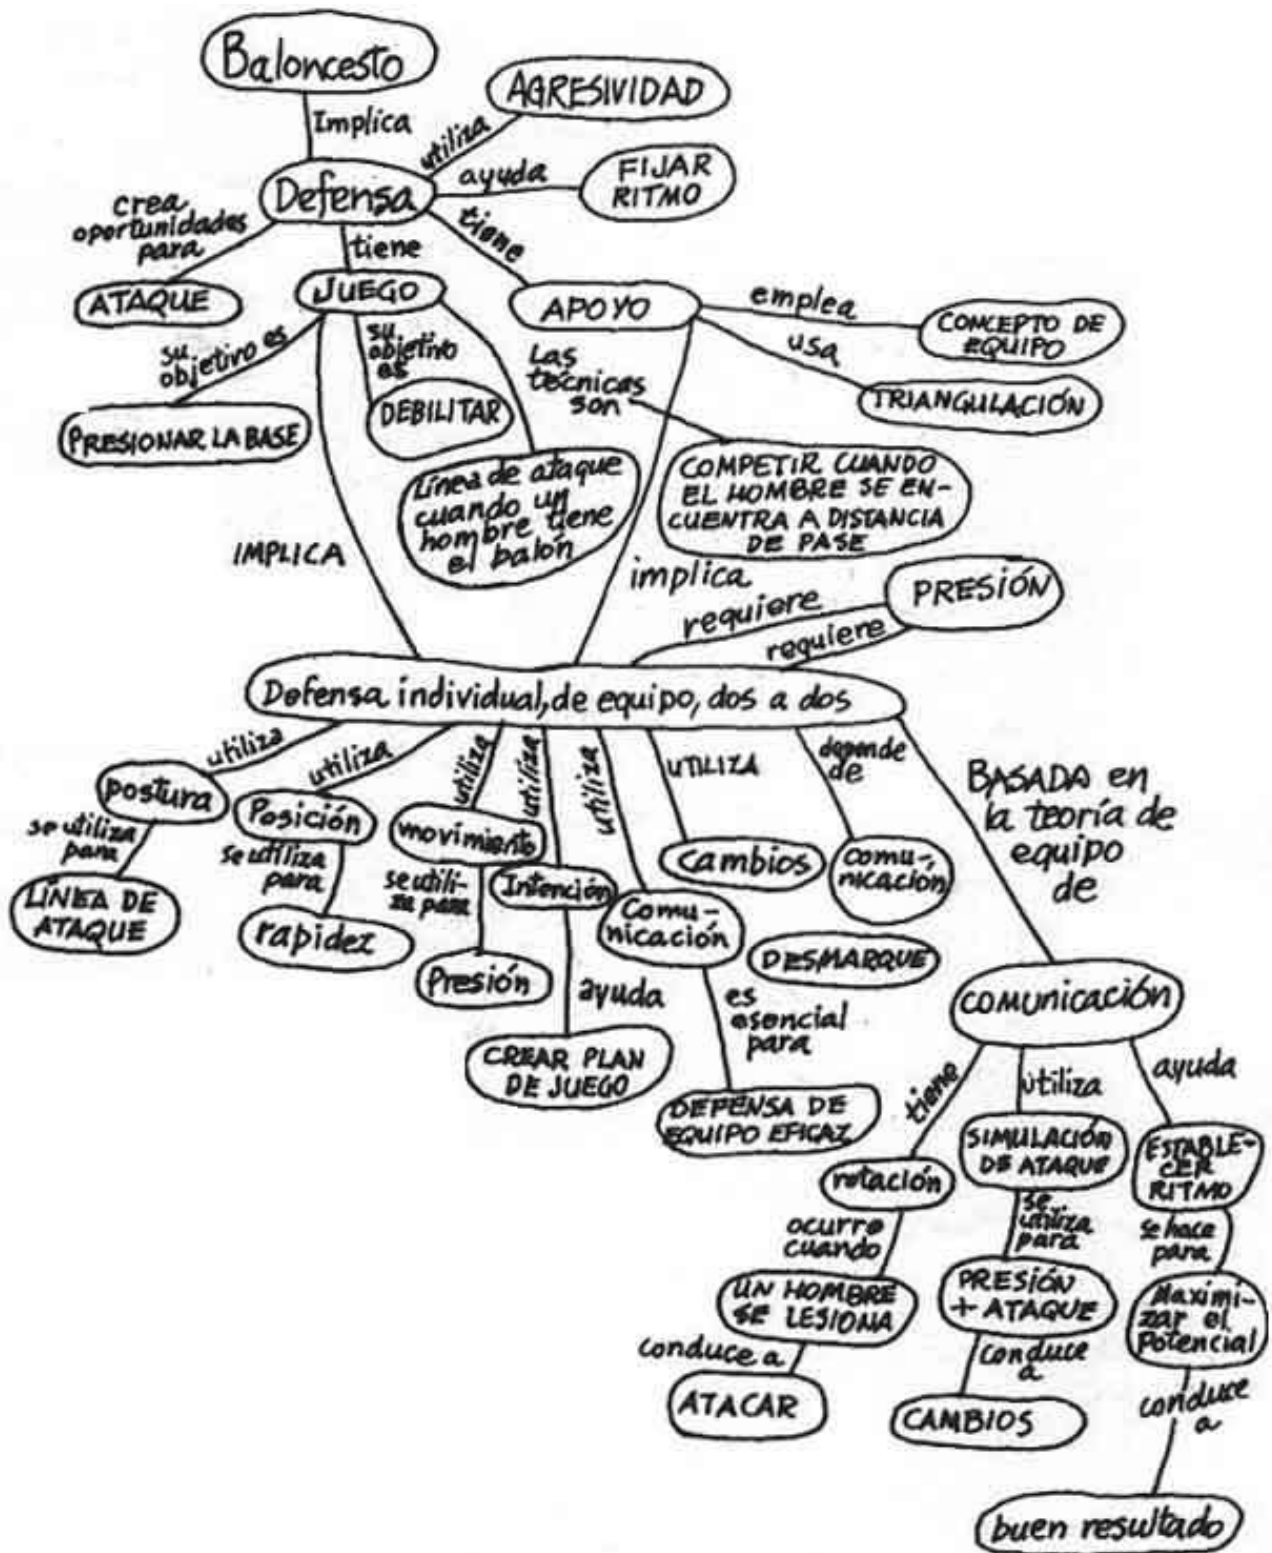 Baloncesto
Implica
AGRESIVIDAD
utiliza
Defensa
ayuda
FIJAR
RITMO
crea
oportunidades
para
tiene
tiene
ATAQUE
JUEGO
APOYO
emplea
CONCEPTO DE
EQUIPO
usa
TRIANGULACIÓN
su
objetivo es
PRESIONAR LA BASE
su
objetivo
es
DEBILITAR
Las
técnicas
son
COMPETIR CUANDO
EL HOMBRE SE EN-
CUENTRA A DISTANCIA
DE PASE
Línea de ataque
cuando un
hombre tiene
el balón
IMPLICA
implica
requiere
requiere
PRESIÓN
Defensa individual, de equipo, dos a dos
utiliza
postura
se utiliza
para
LÍNEA DE
ATAQUE
utiliza
Posición
se utiliza
para
rapidez
utiliza
movimiento
se utili-
za para
Presión
utiliza
Intención
ayuda
CREAR PLAN
DE JUEGO
utiliza
Comu-
nicación
es
esencial
para
DEFENSA DE
EQUIPO EFICAZ
UTILIZA
cambios
depende
de
comu-
nicación
DESMARQUE
BASADA en
la teoría de
equipo
de
comunicación
tiene
rotación
ocurre
cuando
UN HOMBRE
SE LESIONA
conduce a
ATACAR
utiliza
SIMULACIÓN
DE ATAQUE
se
utiliza
para
PRESIÓN
+ ATAQUE
conduce
a
CAMBIOS
ayuda
ESTABLE-
CER
RITMO
se hace
para
Maximi-
zar el
Potencial
conduce
a
buen resultado